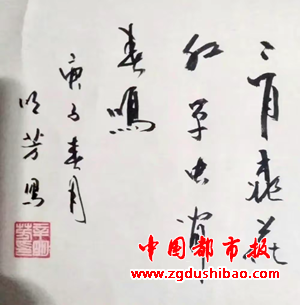 二月桃花
红草虫闹
春鸣
庚子春月
明芳写
中国都市报
www.zgdushibao.com